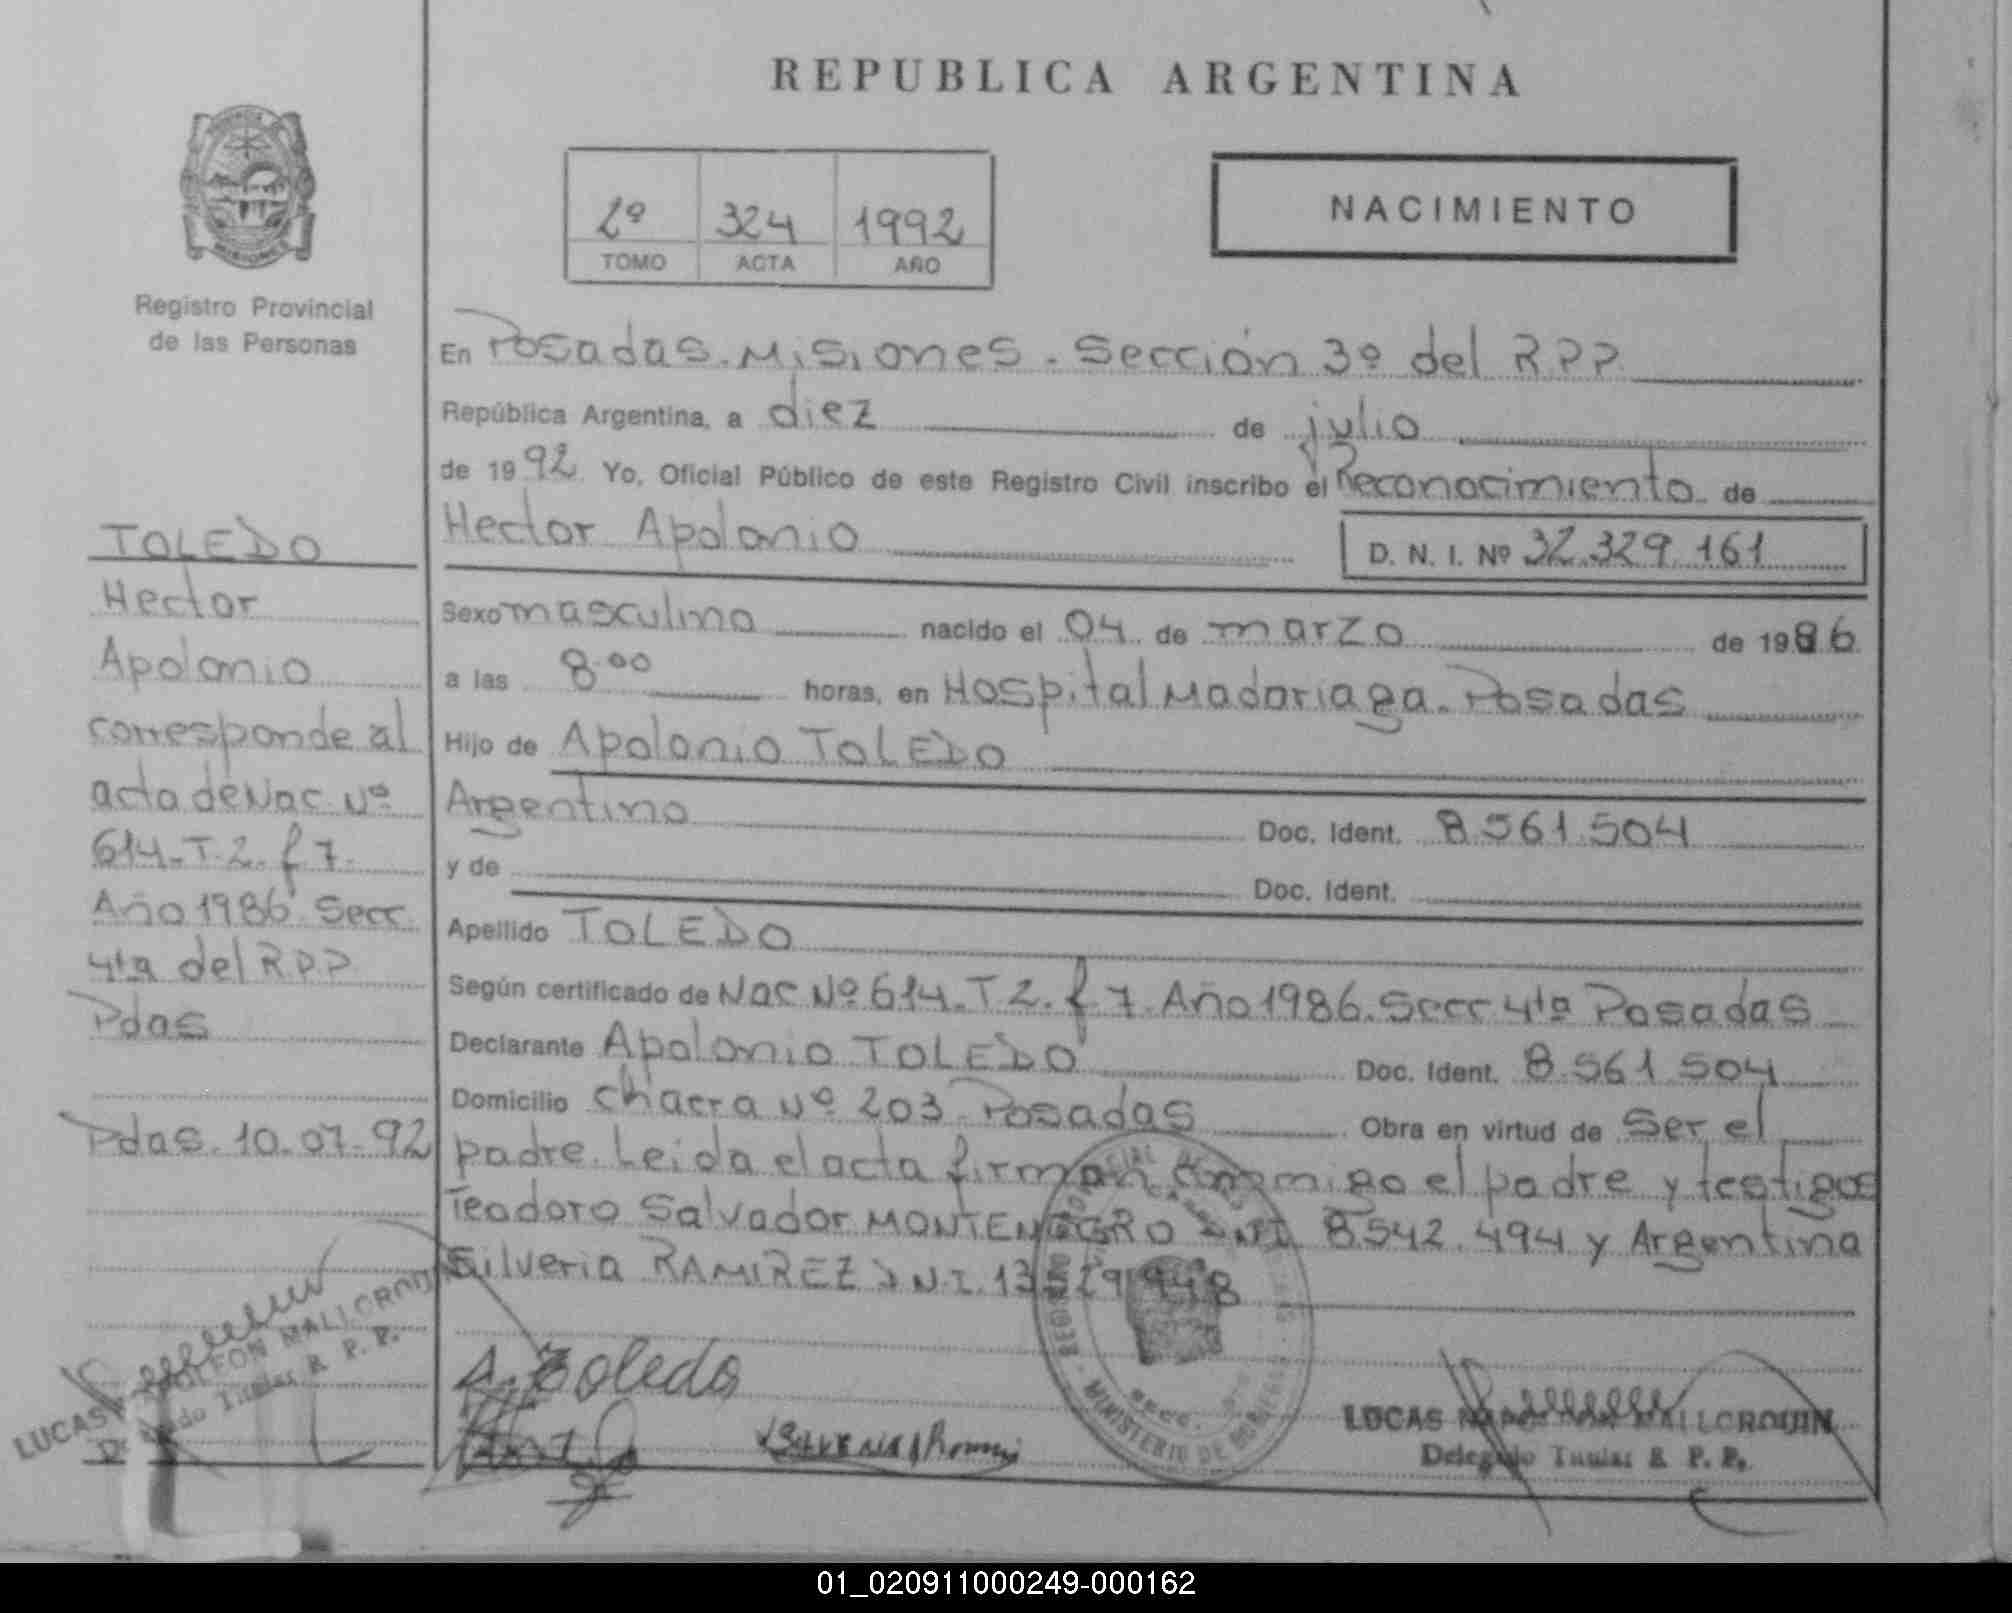 REPUBLICA ARGENTINA
2º 324 1992
TOMO ACTA AÑO
NACIMIENTO
Registro Provincial
de las Personas
En Posadas. Misiones. Sección 3º del R.P.P.
República Argentina, a diez de julio
de 1992 Yo, Oficial Público de este Registro Civil inscribo el Reconocimiento de
Hector Apolonio D. N. I. Nº 32.329.161
Sexo masculino nacido el 04 de marzo de 1986
a las 8.00 horas, en Hospital Madariaga. Posadas
Hijo de Apolonio TOLEDO
Argentino Doc. Ident. 8.561.504
y de Doc. Ident.
Apellido TOLEDO
Según certificado de Nac Nº 614. T 2. f 7. Año 1986. Secc 4ta Posadas
Declarante Apolonio TOLEDO Doc. Ident. 8.561.504
Domicilio Chacra Nº 203 Posadas Obra en virtud de Ser el
padre. Leida el acta firman conmigo el padre y testigos
Teodoro Salvador MONTENEGRO D.N.I. 8.542.494 y Argentina
Silveria RAMIREZ D.N.I.
A. Toledo
LUCAS NAPOLEON MALLORQUIN
Delegado Titular R. P. P.
TOLEDO
Hector
Apolonio
corresponde al
acta de Nac. Nº
614. T. 2. f 7.
Año 1986 Secc.
4ta del R.P.P
Pdas
Pdas. 10.07.92
LUCAS NAPOLEON MALLORQUIN
Delegado Titular R. P. P.
01_020911000249-000162